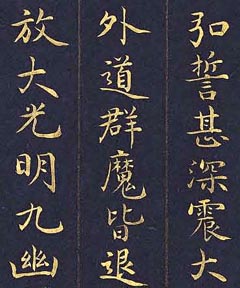 弘誓甚深震大
外道群魔皆退
放大光明九幽